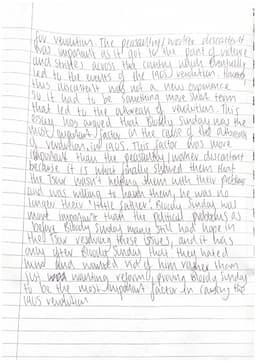 for revolution. The peasantry/worker discontent
was important as it got to the point of violence
and strikes across the country which eventually
led to the events of the 1905 revolution. However
this discontent was not a new experience
so it had to be something more short term
that led to the outbreak of revolution. This
essay has proved that Bloody Sunday was the
most important factor in the cause of the outbreak
of revolution in 1905. This factor was more
important than the peasantry/worker discontent
because it is what finally showed them that
the Tsar wasn't helping them with their problems
and was willing to harm them, he was no
longer their 'little father'. Bloody Sunday was
more important than the political problems as
before Bloody Sunday many still had hope in
the Tsar resolving these issues, and it was
only after Bloody Sunday that they hated
him and wanted rid of him rather than
just wanting reform, proving Bloody Sunday
to be the most important factor in causing the
1905 revolution.